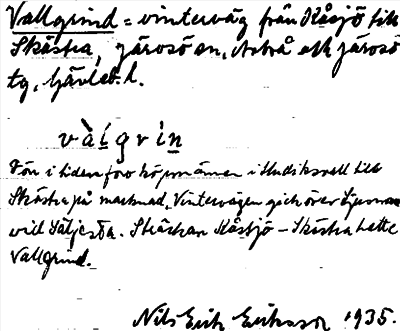 Vallgrind = vinterväg från Kåsjö till
Skästra, Järvsö sn, Arbrå och Järvsö
tg, Gävleb. l.
vàĺgrin
Förr i tiden for köpmännen i Hudiksvall till
Skästra på marknad. Vintervägen gick över
vid Säljesta. Sträckan Kåsjö – Skästra hette
Vallgrind.
Nils Erik Eriksson 1935.